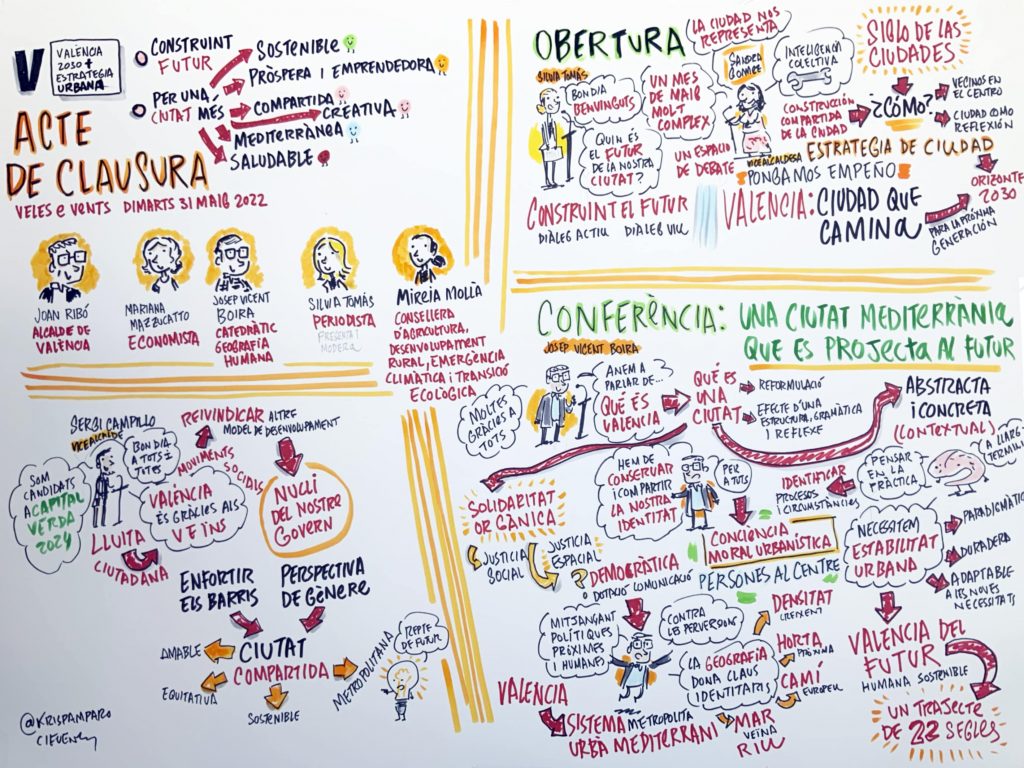 V
VALÈNCIA
2030 +
ESTRATEGIA
URBANA
CONSTRUINT
FUTUR
PER UNA
CIUTAT MÉS
SOSTENIBLE
PRÒSPERA I EMPRENDEDORA
COMPARTIDA
CREATIVA
MEDITERRÀNEA
SALUDABLE
ACTE
DE CLAUSURA
VELES e VENTS DIMARTS 31 MAIG 2022
JOAN RIBÓ
ALCALDE DE
VALÈNCIA
MARIANA
MAZZUCATTO
ECONOMISTA
JOSEP VICENT
BOIRA
CATEDRÀTIC
GEOGRAFIA
HUMANA
SILVIA TOMÁS
PERIODISTA
PRESENTA I
MODERA
MIREIA MOLLÀ
CONSELLERA
D'AGRICULTURA,
DESENVOLUPAMENT
RURAL, EMERGÈNCIA
CLIMÀTICA I TRANSICIÓ
ECOLÒGICA
OBERTURA
SILVIA TOMÁS
BON DIA
BENVINGUTS
QUIN ÉS
EL FUTUR
DE LA NOSTRA
CIUTAT?
UN MES
DE MAIG
MOLT
COMPLEX
UN ESPACIO
DE DEBATE
LA CIUDAD NOS
REPRESENTA
SANDRA
GOMEZ
VICEALCALDESA
INTELIGENCIA
COLECTIVA
CONSTRUCCIÓN
COMPARTIDA
DE LA CIUDAD
SIGLO DE LAS
CIUDADES
¿CÓMO?
VECINOS EN
EL CENTRO
CIUDAD COMO
REFLEXIÓN
ESTRATEGIA DE CIUDAD
PONGAMOS EMPEÑO
CONSTRUINT EL FUTUR
DIÀLEG ACTIU DIÀLEG VIU
VALENCIA: CIUDAD QUE
CAMINA
PARA LA PRÓXIMA
GENERACIÓN
ORIZONTE
2030
SERGI CAMPILLO
VICEALCALDE
BON DIA
A TOTS I
TOTES
SOM
CANDIDATS
A CAPITAL
VERDA
2024
REIVINDICAR
ALTRE
MODEL DE DESENVOLUPAMENT
MOVIMENTS
SOCIALS
VALÈNCIA
ÉS GRÀCIES ALS
VEÏNS
LLUITA
CIUTADANA
NUCLI
DEL NOSTRE
GOVERN
ENFORTIR
ELS BARRIS
PERSPECTIVA
DE GÈNERE
CIUTAT
COMPARTIDA
AMABLE
EQUITATIVA
SOSTENIBLE
METROPOLITANA
REPTE
DE FUTUR
@KRISPAMPARO
CIFUEN
CONFERÈNCIA: UNA CIUTAT MEDITERRÀNIA
QUE ES PROJECTA AL FUTUR
JOSEP VICENT BOIRA
MOLTES
GRÀCIES A
TOTS
ANEM A
PARLAR DE...
QUÈ ÉS
VALENCIA
QUÈ ÉS
UNA
CIUTAT
REFORMULACIÓ
EFECTE D'UNA
ESTRUCTURA, GRAMÀTICA
I REFLEXE
ABSTRACTA
I CONCRETA
(CONTEXTUAL)
SOLIDARITAT
ORGÀNICA
JUSTICIA
SOCIAL
JUSTICIA
ESPACIAL
?
HEM DE
CONSERVAR
I COMPARTIR
LA NOSTRA
IDENTITAT
PER
A TOTS
IDENTIFICAR
PROCESOS
CIRCUMSTÀNCIES
PENSAR
EN LA
PRÀCTICA
A LLARG
TERMINI
CONCIÈNCIA
MORAL URBANÍSTICA
PERSONES AL CENTRE
DEMOCRÀTICA
O DOTACIÓ COMUNICACIÓ
NECESSITEM
ESTABILITAT
URBANA
PARADIGMÀTICA
DURADERA
ADAPTABLE
A LES NOVES
NECESSITATS
MITJANÇANT
POLÍTIQUES
PRÒXIMES
I HUMANES
CONTRA
LES PERVERSIONS
LA GEOGRAFIA
DONA CLAUS
IDENTITARIS
DENSITAT
CREIXENT
HORTA
PRÒXIMA
CAMÍ
EUROPEU
MAR
VEÏNA
RIU
VALENCIA
SISTEMA METROPOLITÀ
URBÀ MEDITERRANI
VALENCIA DEL
FUTUR
HUMANA SOSTENIBLE
UN TRAJECTE
DE 22 SEGLES